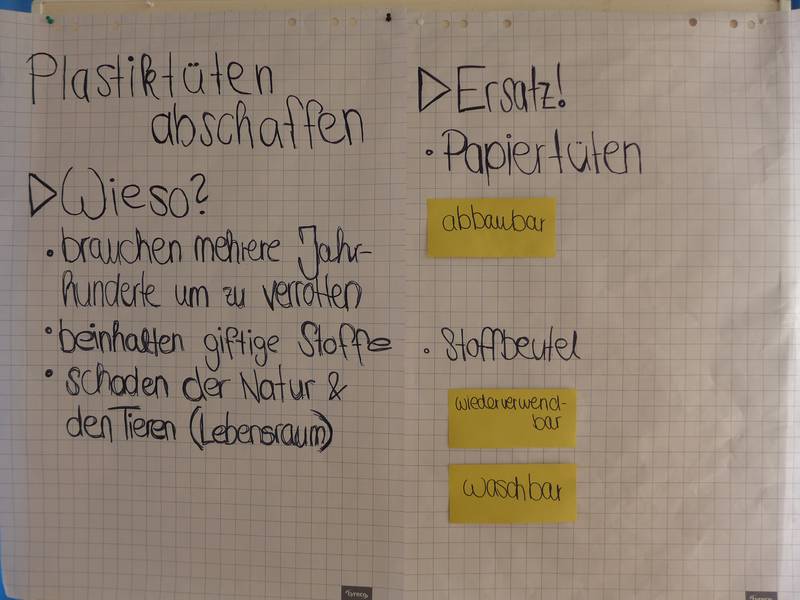 Plastiktüten
abschaffen
Wieso?
• brauchen mehrere Jahr-
hunderte um zu verrotten
• beinhalten giftige Stoffe
• schaden der Natur &
den Tieren (Lebensraum)
Ersatz!
• Papiertüten
abbaubar
• Stoffbeutel
wiederverwend-
bar
waschbar